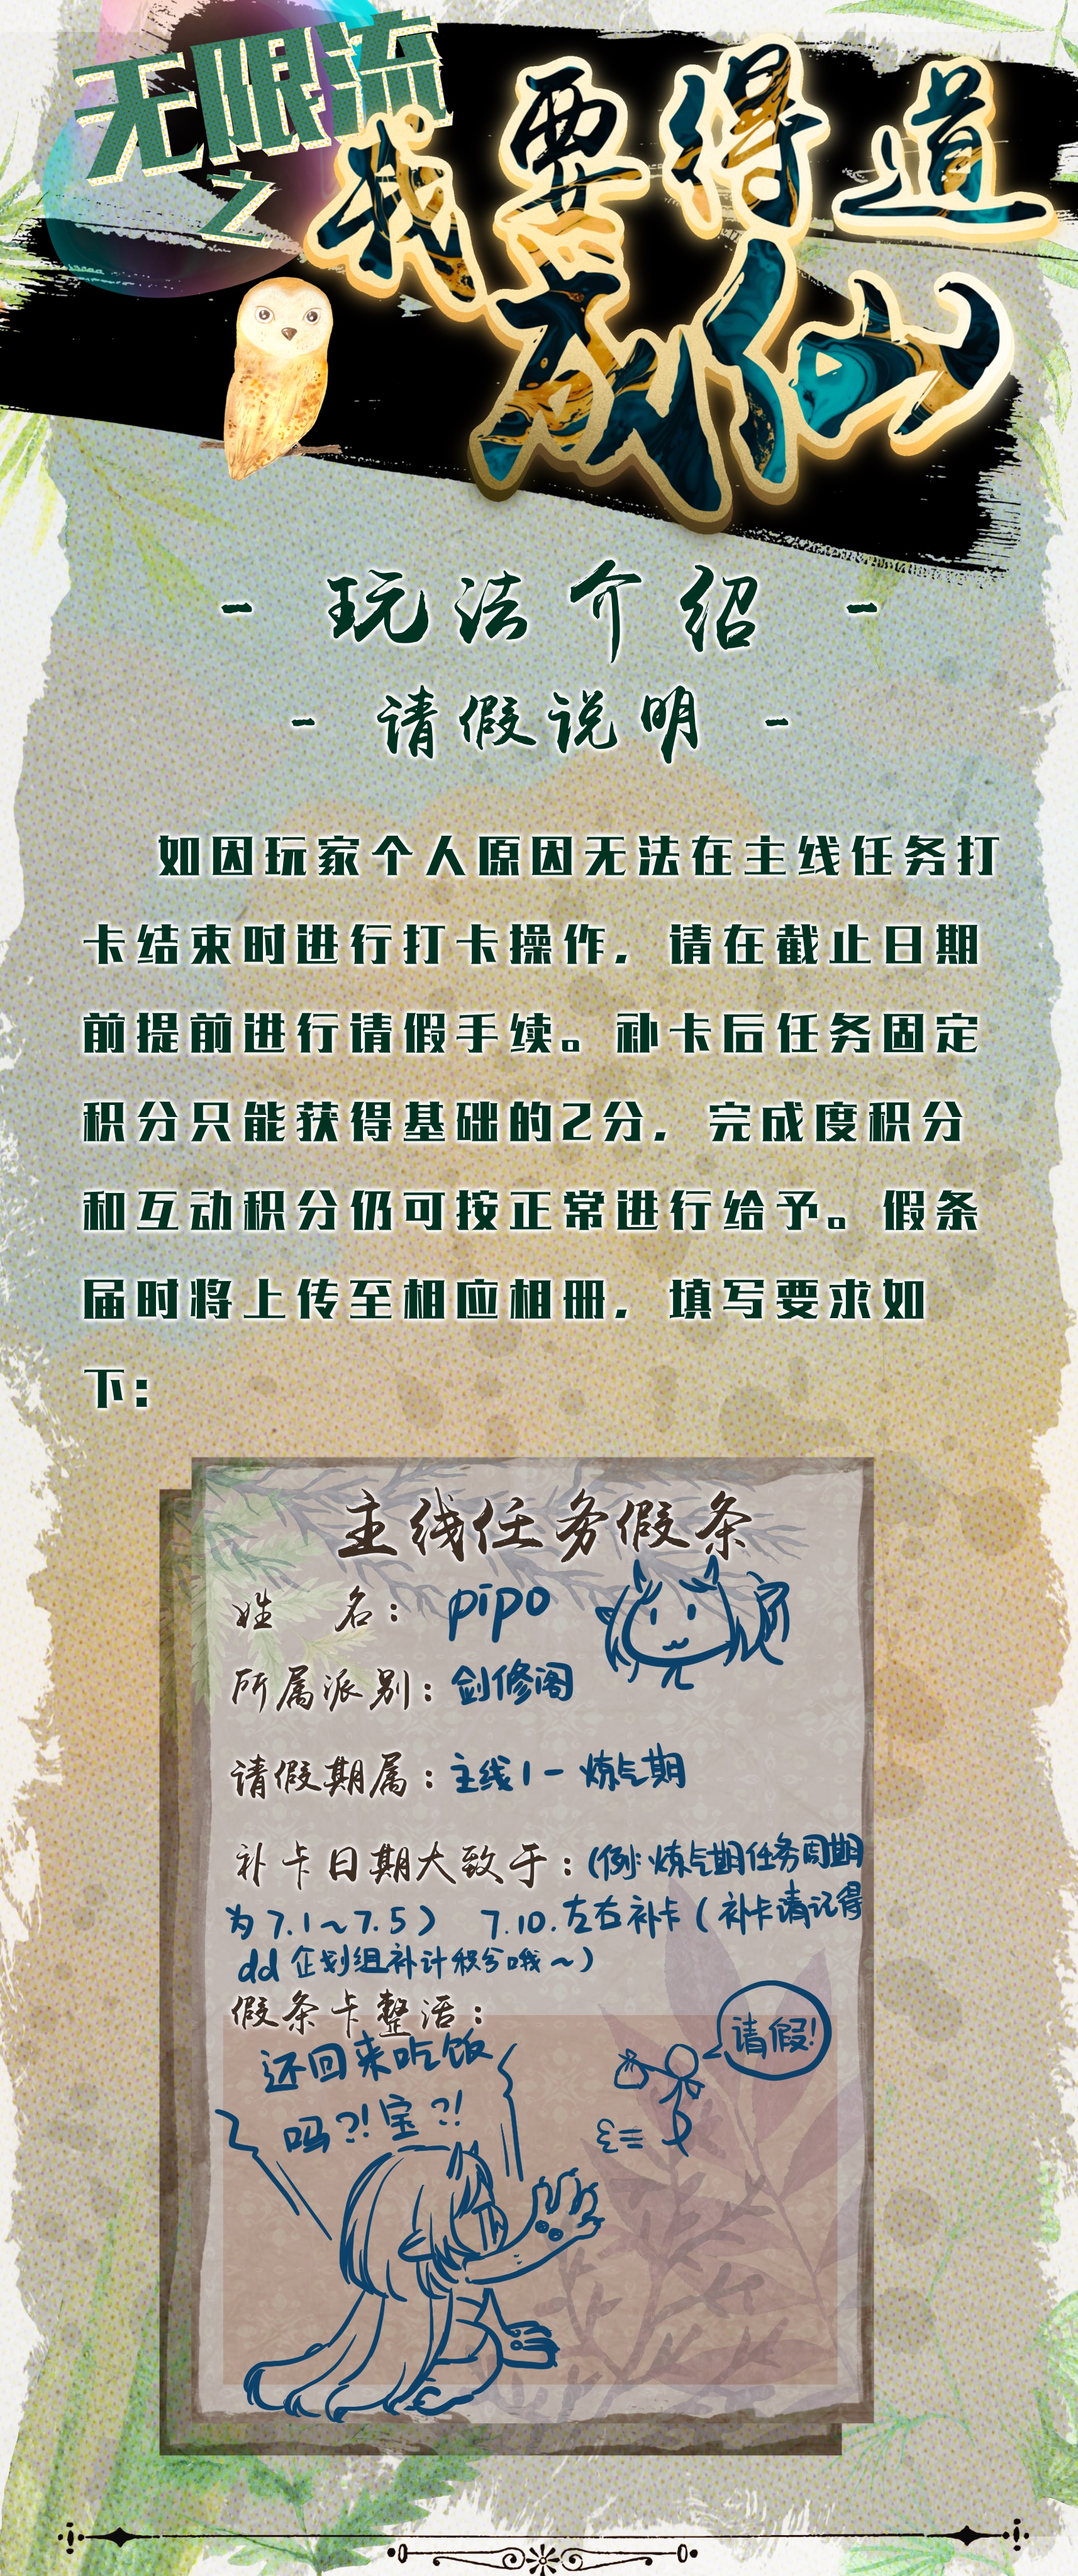 无限流
之
我要得道
成仙
- 玩法介绍 -
- 请假说明 -
如因玩家个人原因无法在主线任务打
卡结束时进行打卡操作，请在截止日期
前提前进行请假手续。补卡后任务固定
积分只能获得基础的2分，完成度积分
和互动积分仍可按正常进行给予。假条
届时将上传至相应相册，填写要求如
下：
主线任务假条
姓 名：pipo
所属派别：剑修阁
请假期属：主线1-炼气期
补卡日期大致于：(例:炼气期任务周期
为7.1~7.5) 7.10.左右补卡(补卡请记得
dd企划组补计积分哦~)
假条卡整活：
请假!
还回来吃饭
吗?!宝?!